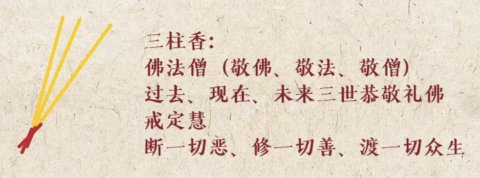 三柱香:
佛法僧（敬佛、敬法、敬僧）
过去、现在、未来三世恭敬礼佛
戒定慧
断一切恶、修一切善、渡一切众生